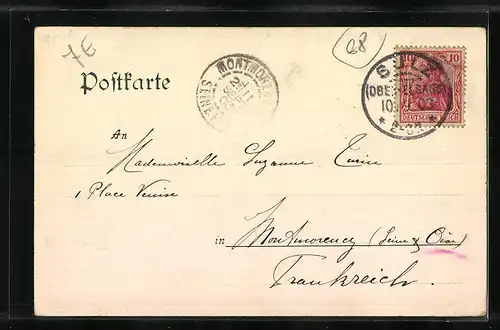 7€
68
Postkarte
MONTMORENCY
SEINE
SULZ
(OBER-ELSASS)
10
2-3N
10 10
DEUTSCHES REICH
An
Mademoiselle Suzanne
1 Place Venise
in Montmorency (Seine & Oise)
Frankreich.